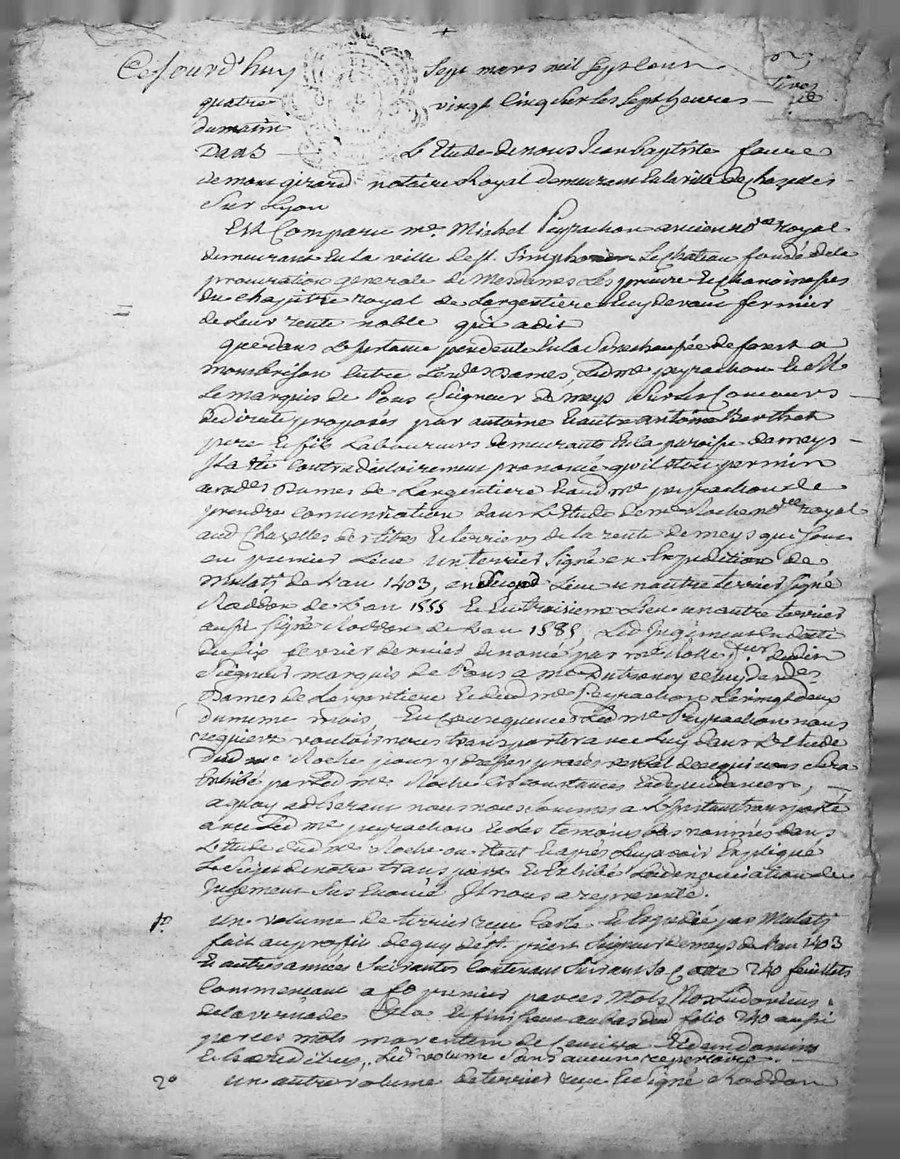 Cejourd'huy sept mars mil sept cent
quatre vingt cinq sur les sept heures
du matin
Dans L'Etude de nous Jean baptiste faure
de mont girard notaire Royal demeurant en la ville de Chazelles
sur Lyon
Est Comparu me. Michel Peyrachon ancien nore royal
demeurant en la ville de st. Simphorien Le chateau fondé de la
procuration generale de mesdames Les prieure et chanoinesses
du chapitre royal de Largentiere cy devant fermier
de Leur rente noble qui a dit
que dans L'instance pendente en la Senechaussée de forest a
monbrison Entre Lesdes Dames, Led me peyrachon et M
Le marquis de Pons Seigneur de meys sur le Concours
de directe proposés par antoine et autre antoine Berthet
pere et fils Laboureurs demeurants en la paroisse de meys
Il a été contradictoirement prononcé qu'il étoit permis
auxdes Dames de Largentiere et aud me peyrachon de
prendre comunication dans L'Etude de me Roche nore royal
aud Chazelles des titres et terriers de la rente de meys qui sont
en premier Lieu un terrier signé en Expedition de
Mulati de L'an 1403, en second Lieu un autre terrier signé
Roddon de L'an 1555 et en troisieme Lieu un autre terrier
aussi signé Roddon de L'an 1585, Led Jugement en date
du six fevrier dernier
Seigneur marquis de Pons a me Dutroncy celuy desdes
Dames de Largentiere et dud me Peyrachon Le vingt deux
du meme mois, En consequence Led me Peyrachon nous
requiert vouloir nous transporter avec Luy dans L'Etude
dud me Roche pour y dresser procès verbal de ce qui nous sera
Exhibé par Led me Roche Circonstances et dependances,
a quoy adherant nous nous sommes a L'instant transporté
avec Led me peyrachon et des temoins bas nommés dans
L'Etude dud me Roche ou étant et après Luy avoir Expliqué
Le sujet de notre transport et Exhibé La denonciation du
Jugement sus Enoncé Il nous a representé.
1o un volume de terrier Expedié par Mulati
fait au profit de guy de st. priest Seigneur de meys de L'an 1403
et autres années suivantes contenant suivant sa Cotte 240 feuillets
Commencant a fo premier par ces mots Nos Ludovicus
de la vernade et finissant au bas dud folio 240 aussi
par ces mots
Led volume sans aucun repertoire.
2o un autre volume de terrier Signé Roddon